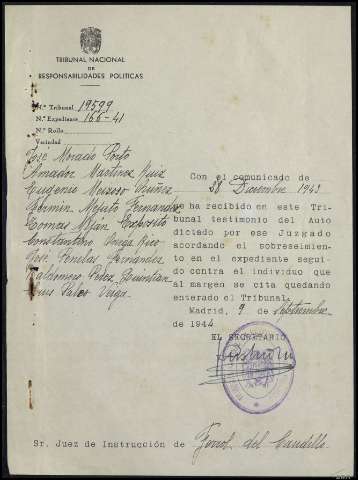 TRIBUNAL NACIONAL
DE
RESPONSABILIDADES POLITICAS
N.º Tribunal 19599
N.º Expediente 166-41
N.º Rollo
Vecindad
José Morado Porto
Amador Martinez Ruiz
Eugenio Meizoso
Fermin Mejuto Fernandez
Tomas Expósito
Constantino
José Penelas Fernandez
Baldomero Perez Quintian
Luis Pablos Veiga
Con el comunicado de
28 Diciembre 1943
se ha recibido en este Tri-
bunal testimonio del Auto
dictado por ese Juzgado
acordando el sobreseimien-
to en el expediente segui-
do contra el individuo que
al margen se cita quedando
enterado el Tribunal.
Madrid, 9 de Septiembre
de 1944
EL SECRETARIO
Sr. Juez de Instrucción de Ferrol del Caudillo